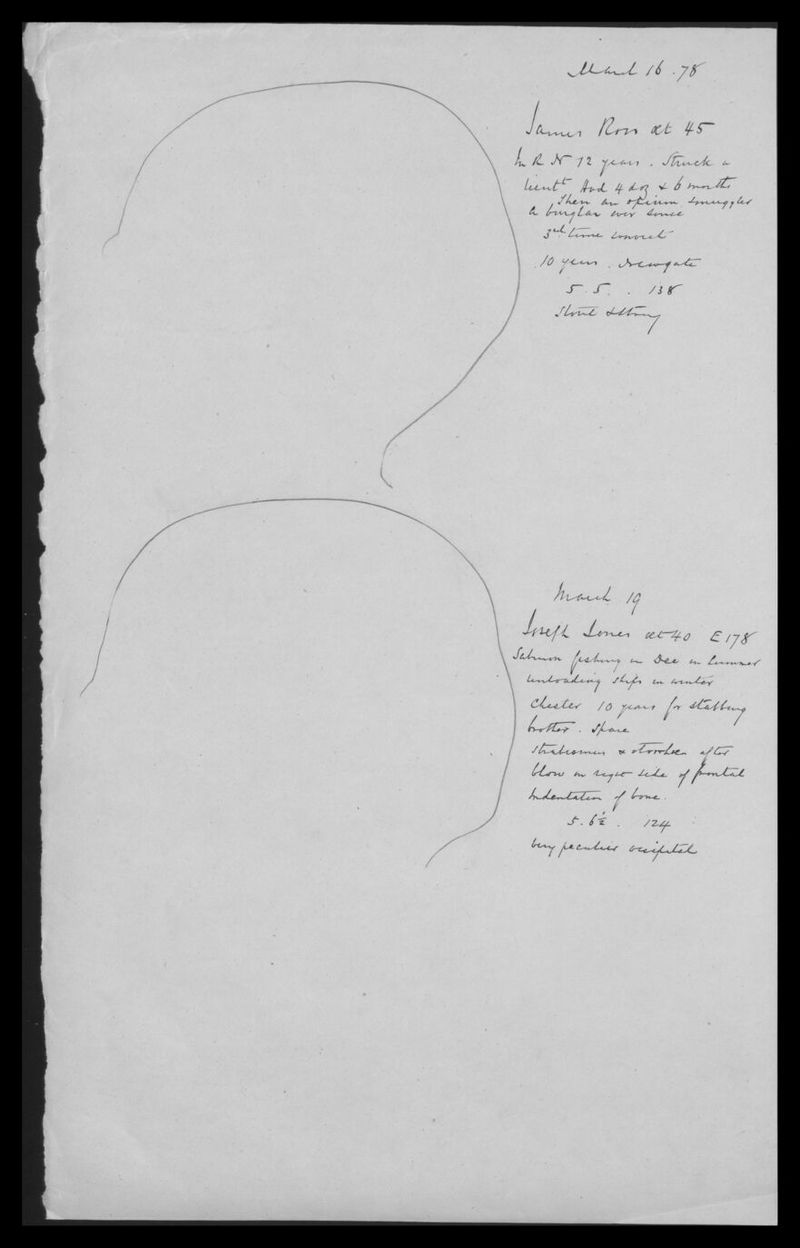 March 16 . 78
James Ross æt 45
In R N 12 years . Struck a
lieutt Had 4 doz & 6 months
Then an opium smuggler
a burglar ever since
3rd time convict
10 years . Newgate
5 . 5 . . 138
Stout & strong
March 19
Joseph Jones æt 40 E178
Salmon fishing in Dee in summer
unloading ships in winter
Chester 10 years for stabbing
brother . Spare
Strabismus & otorrhœa after
blow on right side of frontal
Indentation of bone .
5 . 6½ . 124
Very peculiar occipital